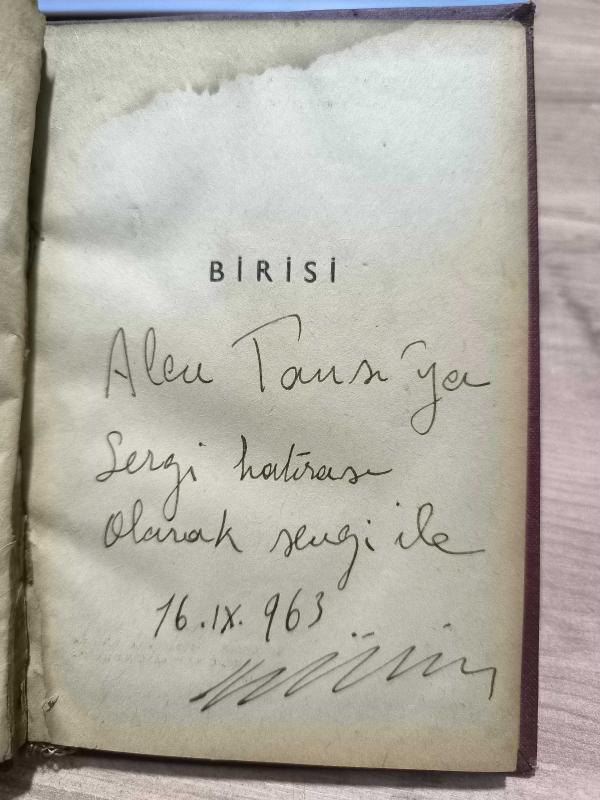 BİRİSİ
Alev Tansı'ya
Sergi hatırası
Olarak sevgi ile
16.IX.963